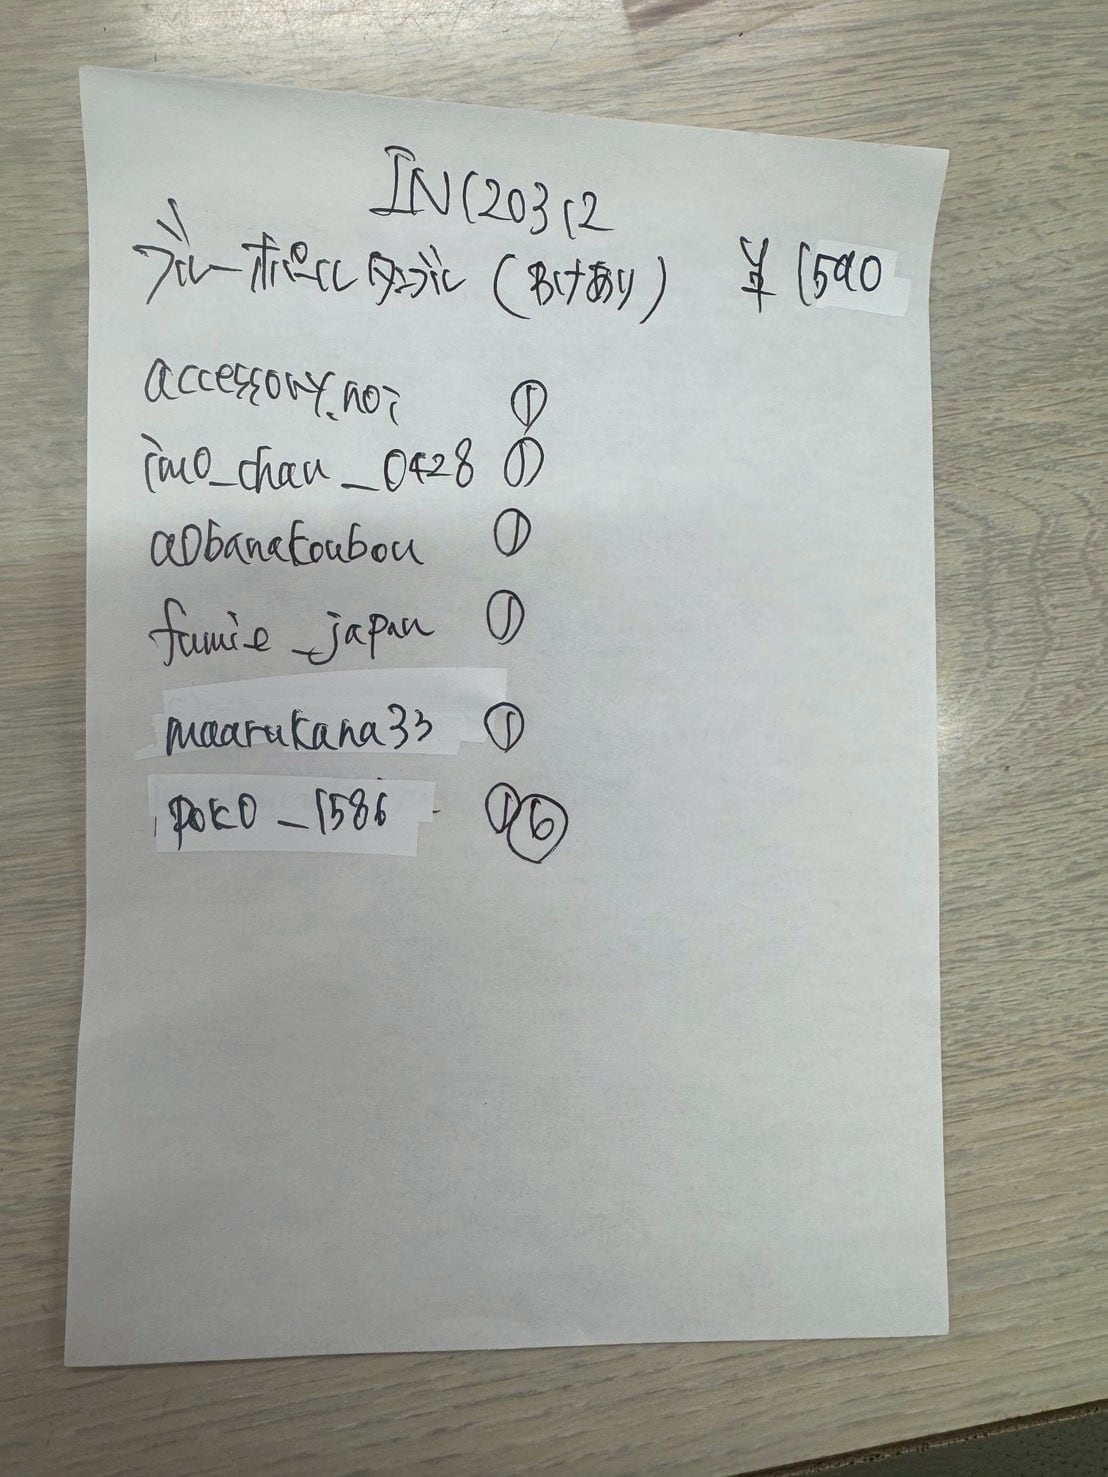 INC20312
ブルーオパールタンブル (わけあり) ¥1590
accessory.noi ①
imo_chan_0428 ①
aobanakoubou ①
fumie_japan ①
maarukana33 ①
poko_1586 ① ⑥